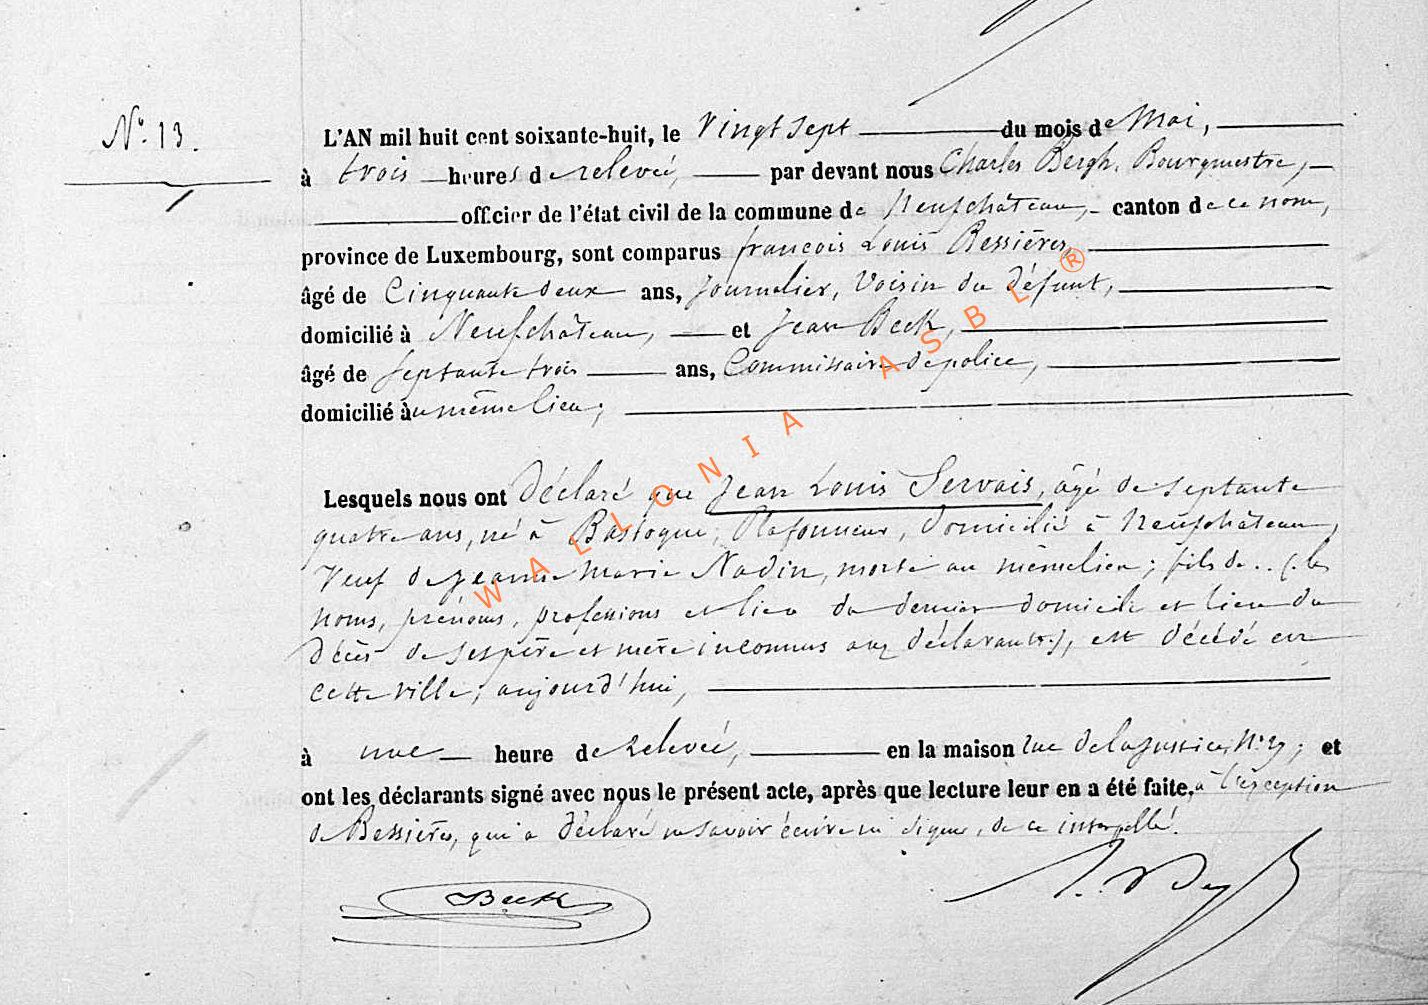 N.° 13.
L'AN mil huit cent soixante-huit, le Vingt sept du mois de Mai,
à trois heures de relevée, par devant nous Charles Bergh, Bourgmestre,
officier de l'état civil de la commune de Neufchâteau, canton de ce nom,
province de Luxembourg, sont comparus françois Louis Bessières,
âgé de Cinquante deux ans, Journalier, Voisin du Défunt,
domicilié à Neufchâteau, et Jean Beck,
âgé de Septante trois ans, Commissaire de police,
domicilié au même lieu;
Lesquels nous ont Déclaré que Jean Louis Servais, âgé de septante
quatre ans, né à Bastogne, Plafonneur, Domicilié à Neufchâteau,
Veuf de Jeanne Marie Nadin, morte au même lieu; fils de .. (les
noms, prénoms, professions et lieu du dernier domicile et lieu du
Décès de ses père et mère inconnus aux déclarants), est décédé en
cette ville, aujourd'hui,
à une heure de relevée, en la maison rue de la Justice, N°; et
ont les déclarants signé avec nous le présent acte, après que lecture leur en a été faite, à l'exception
de Bessières, qui a Déclaré ne savoir écrire ni signer, de ce interpellé.
Beck
WALLONIA ASBL ®